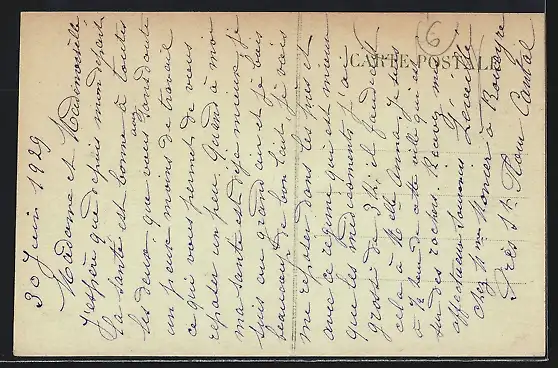 30 Juin 1929
Madame et Mademoiselle
J'espère que depuis mon départ
la santé est bonne à toutes
les deux, que vous avez sans doute
un peu moins de travail
ce qui vous permet de vous
reposer un peu. Quand à moi
ma santé est déjà mieux, je
suis au grand air et je bois
beaucoup de bon lait. Je vais
me reposer dans les puis et
avec ce régime qui est mieux
que les médicaments j'ai
grossi de 3 k: il faudrait
cela à Melle Anna, je suis
à de cette ville qui est
sur des rochers. Recevez mes
affectueux souvenirs Léveillé
chez Mme Monier à Roueyre
Près St Flour Cantal
CARTE POSTALE
6